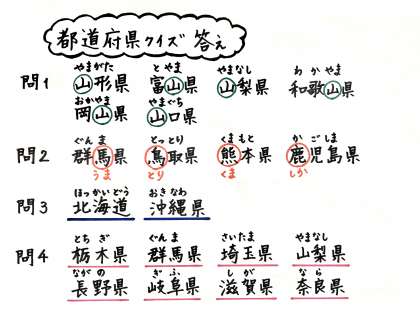 都道府県クイズ 答え
やまがた とやま やまなし わかやま
問1 山形県 富山県 山梨県 和歌山県
おかやま やまぐち
岡山県 山口県
ぐんま とっとり くまもと かごしま
問2 群馬県 鳥取県 熊本県 鹿児島県
うま とり くま しか
ほっかいどう おきなわ
問3 北海道 沖縄県
とちぎ ぐんま さいたま やまなし
問4 栃木県 群馬県 埼玉県 山梨県
ながの ぎふ しが なら
長野県 岐阜県 滋賀県 奈良県